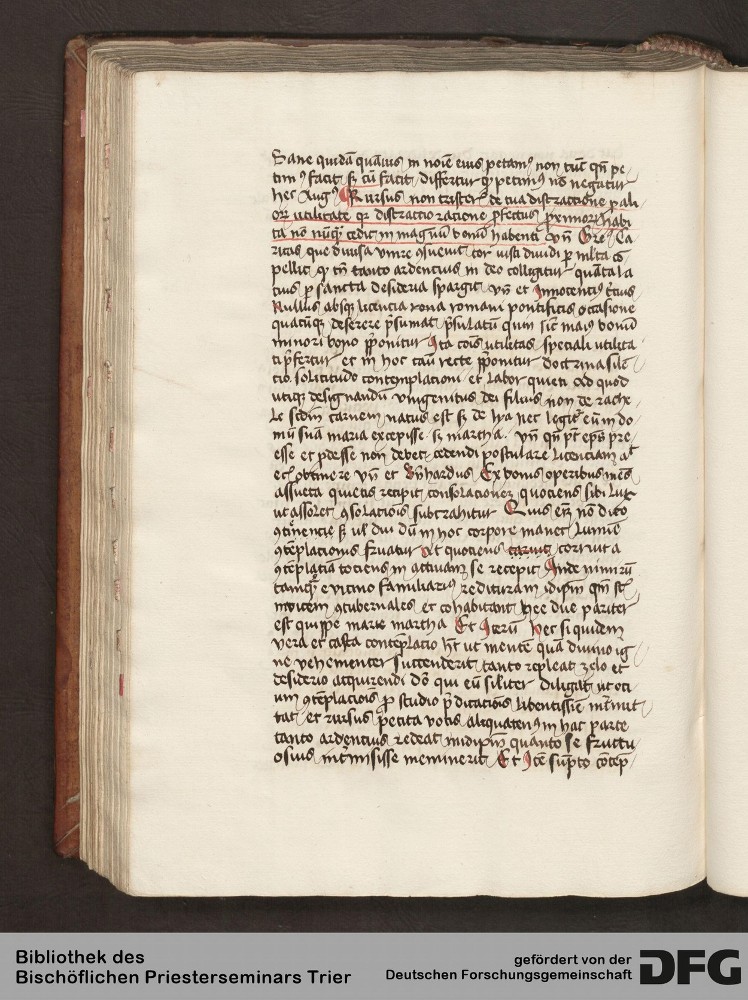 Sane quidā quāuis in noīe eius petam⁹ non tūc qn̄ pe
tim⁹ facit sꝫ cū facit differtur qꝫ petim⁹ nō negatur
hec Aug⁹ Rursus non tristeris de tua distractione pali
ori utilitate qr distractio racione ꝓfectus
ta nō nūqꝫ cedit in magnū bonū habenti vn̄ Gre Ca
ritas que diuisa vnire ꝯsueuit cor iusti diuidi ꝑ mlta cō
pellit qꝫ tn̄ tanto ardencius in deo colligitur quāta la
cius ꝑ sancta desideria spargit vn̄ et Innocenti⁹ t̄cius
Nullus absqꝫ licencia romani pontificis occasione
quacūqꝫ deserere p̄sumat p̄sulatū qm̄ sic maius bonū
minori bono p̄ponitur Ita cōis utilitas speciali utilita
ti p̄fertur et in hoc casu recte p̄ponitur doctrina silē
cio solicitudo contemplacioni et labor quieti ad quod
utiqꝫ designandū vnigenitus dei filius non de rache
le scdm̄ carnem natus est sꝫ de lya nec legitr eū in do
mū suā maria excepisse sꝫ martha vn̄ qn̄ pt̄ eps̄ pre
esse et ꝓdesse non debet cedendi postulare licenciam
optinere vn̄ et Bn̄hardus Ex bonis operibus mēs
assueta quietis recipit consolacionez quociens sibi lux
ut assolet ꝯsolacionis subtrahitur Quis em̄ nō dico
ꝯtinentie sꝫ vl diu dū in hoc corpore manet lumine
ꝯtēplacionis fruatur At quociens corruit a
ꝯtēplatia tociens in actiuam se recepit Inde nimirū
tamqꝫ e vicino familiarius reditura in idipm̄ qm̄ st̄
inuicem ꝯtubernales et cohabitant hee due pariter
est quippe marie martha Et Iterū hec siquidem
vera et casta contēplacio ht̄ ut mentē quā diuino ig
ne vehementer succenderit tanto repleat zelo et
desiderio acquirendi dō qui eū siliter diligāt ut oci
um ꝯtēplacionis ꝓ studio p̄dicacionis libentissīe int̄mit
tat et rursus petita votis aliquatenus in hac parte
tanto ardencius redeat in idipm̄ quanto se fructu
osius int̄misisse meminerit Et Itē sūpto cōtēp
Bibliothek des
Bischöflichen Priesterseminars Trier
gefördert von der
Deutschen Forschungsgemeinschaft
DFG